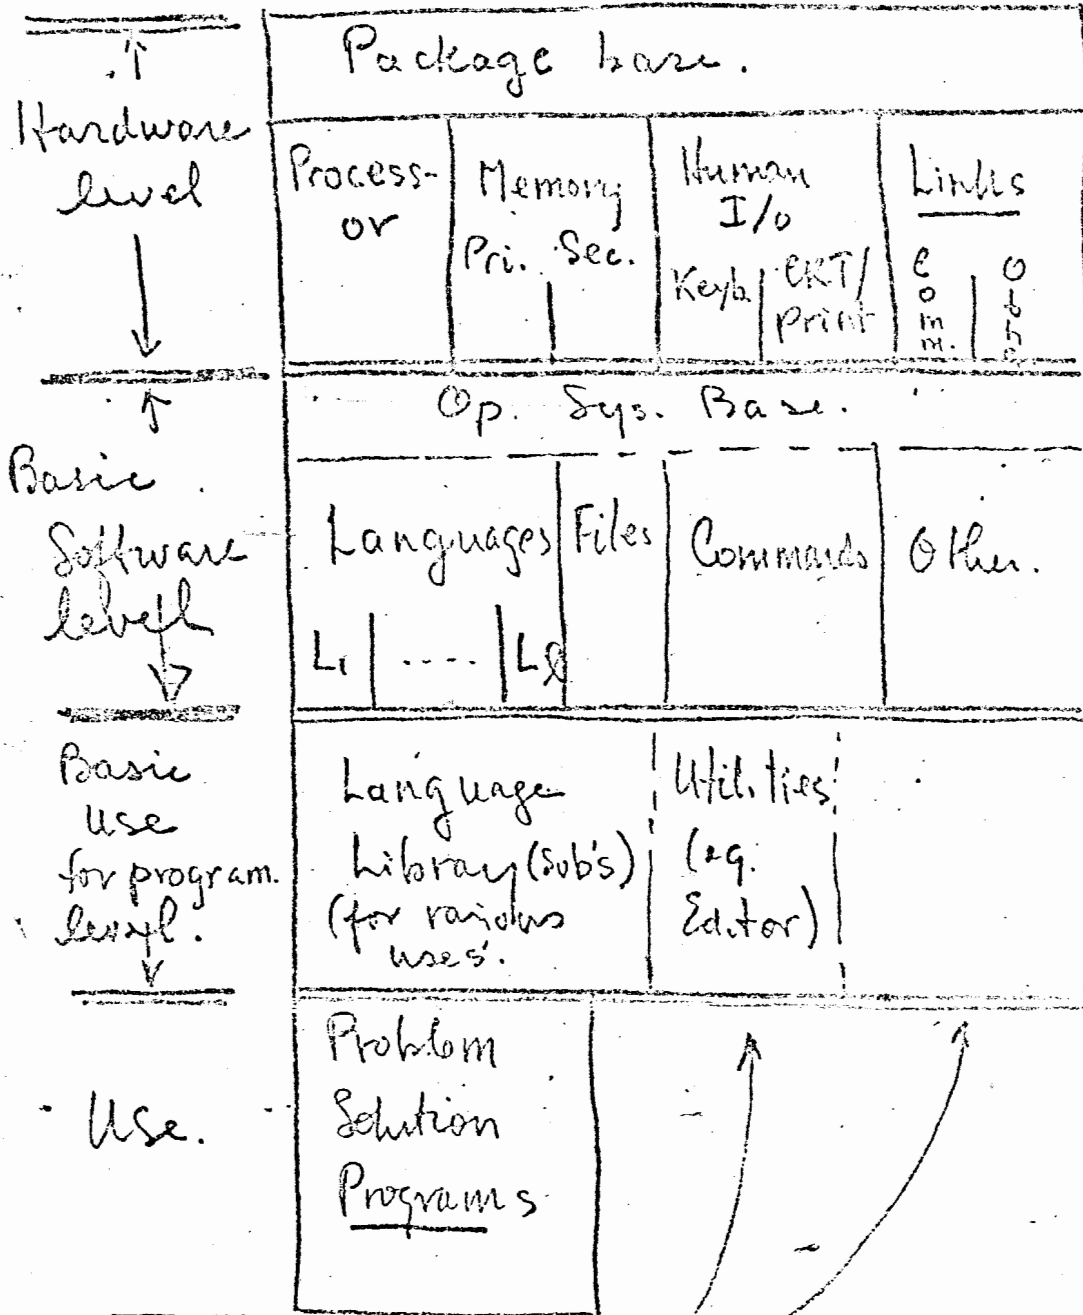 Package base.
Hardware
level
Process-
or
Memory
Pri. Sec.
Human
I/o
Keyb. CRT/
print
Links
Comm.
Op. Sys. Base.
Basic
Software
level
Languages
L1 ..... Ll
Files
Commands
Other.
Basic
use
for program.
level.
Language
Library (Sub's)
(for various
uses.
Utilities
(eg.
Editor)
Use.
Problem
Solution
Programs